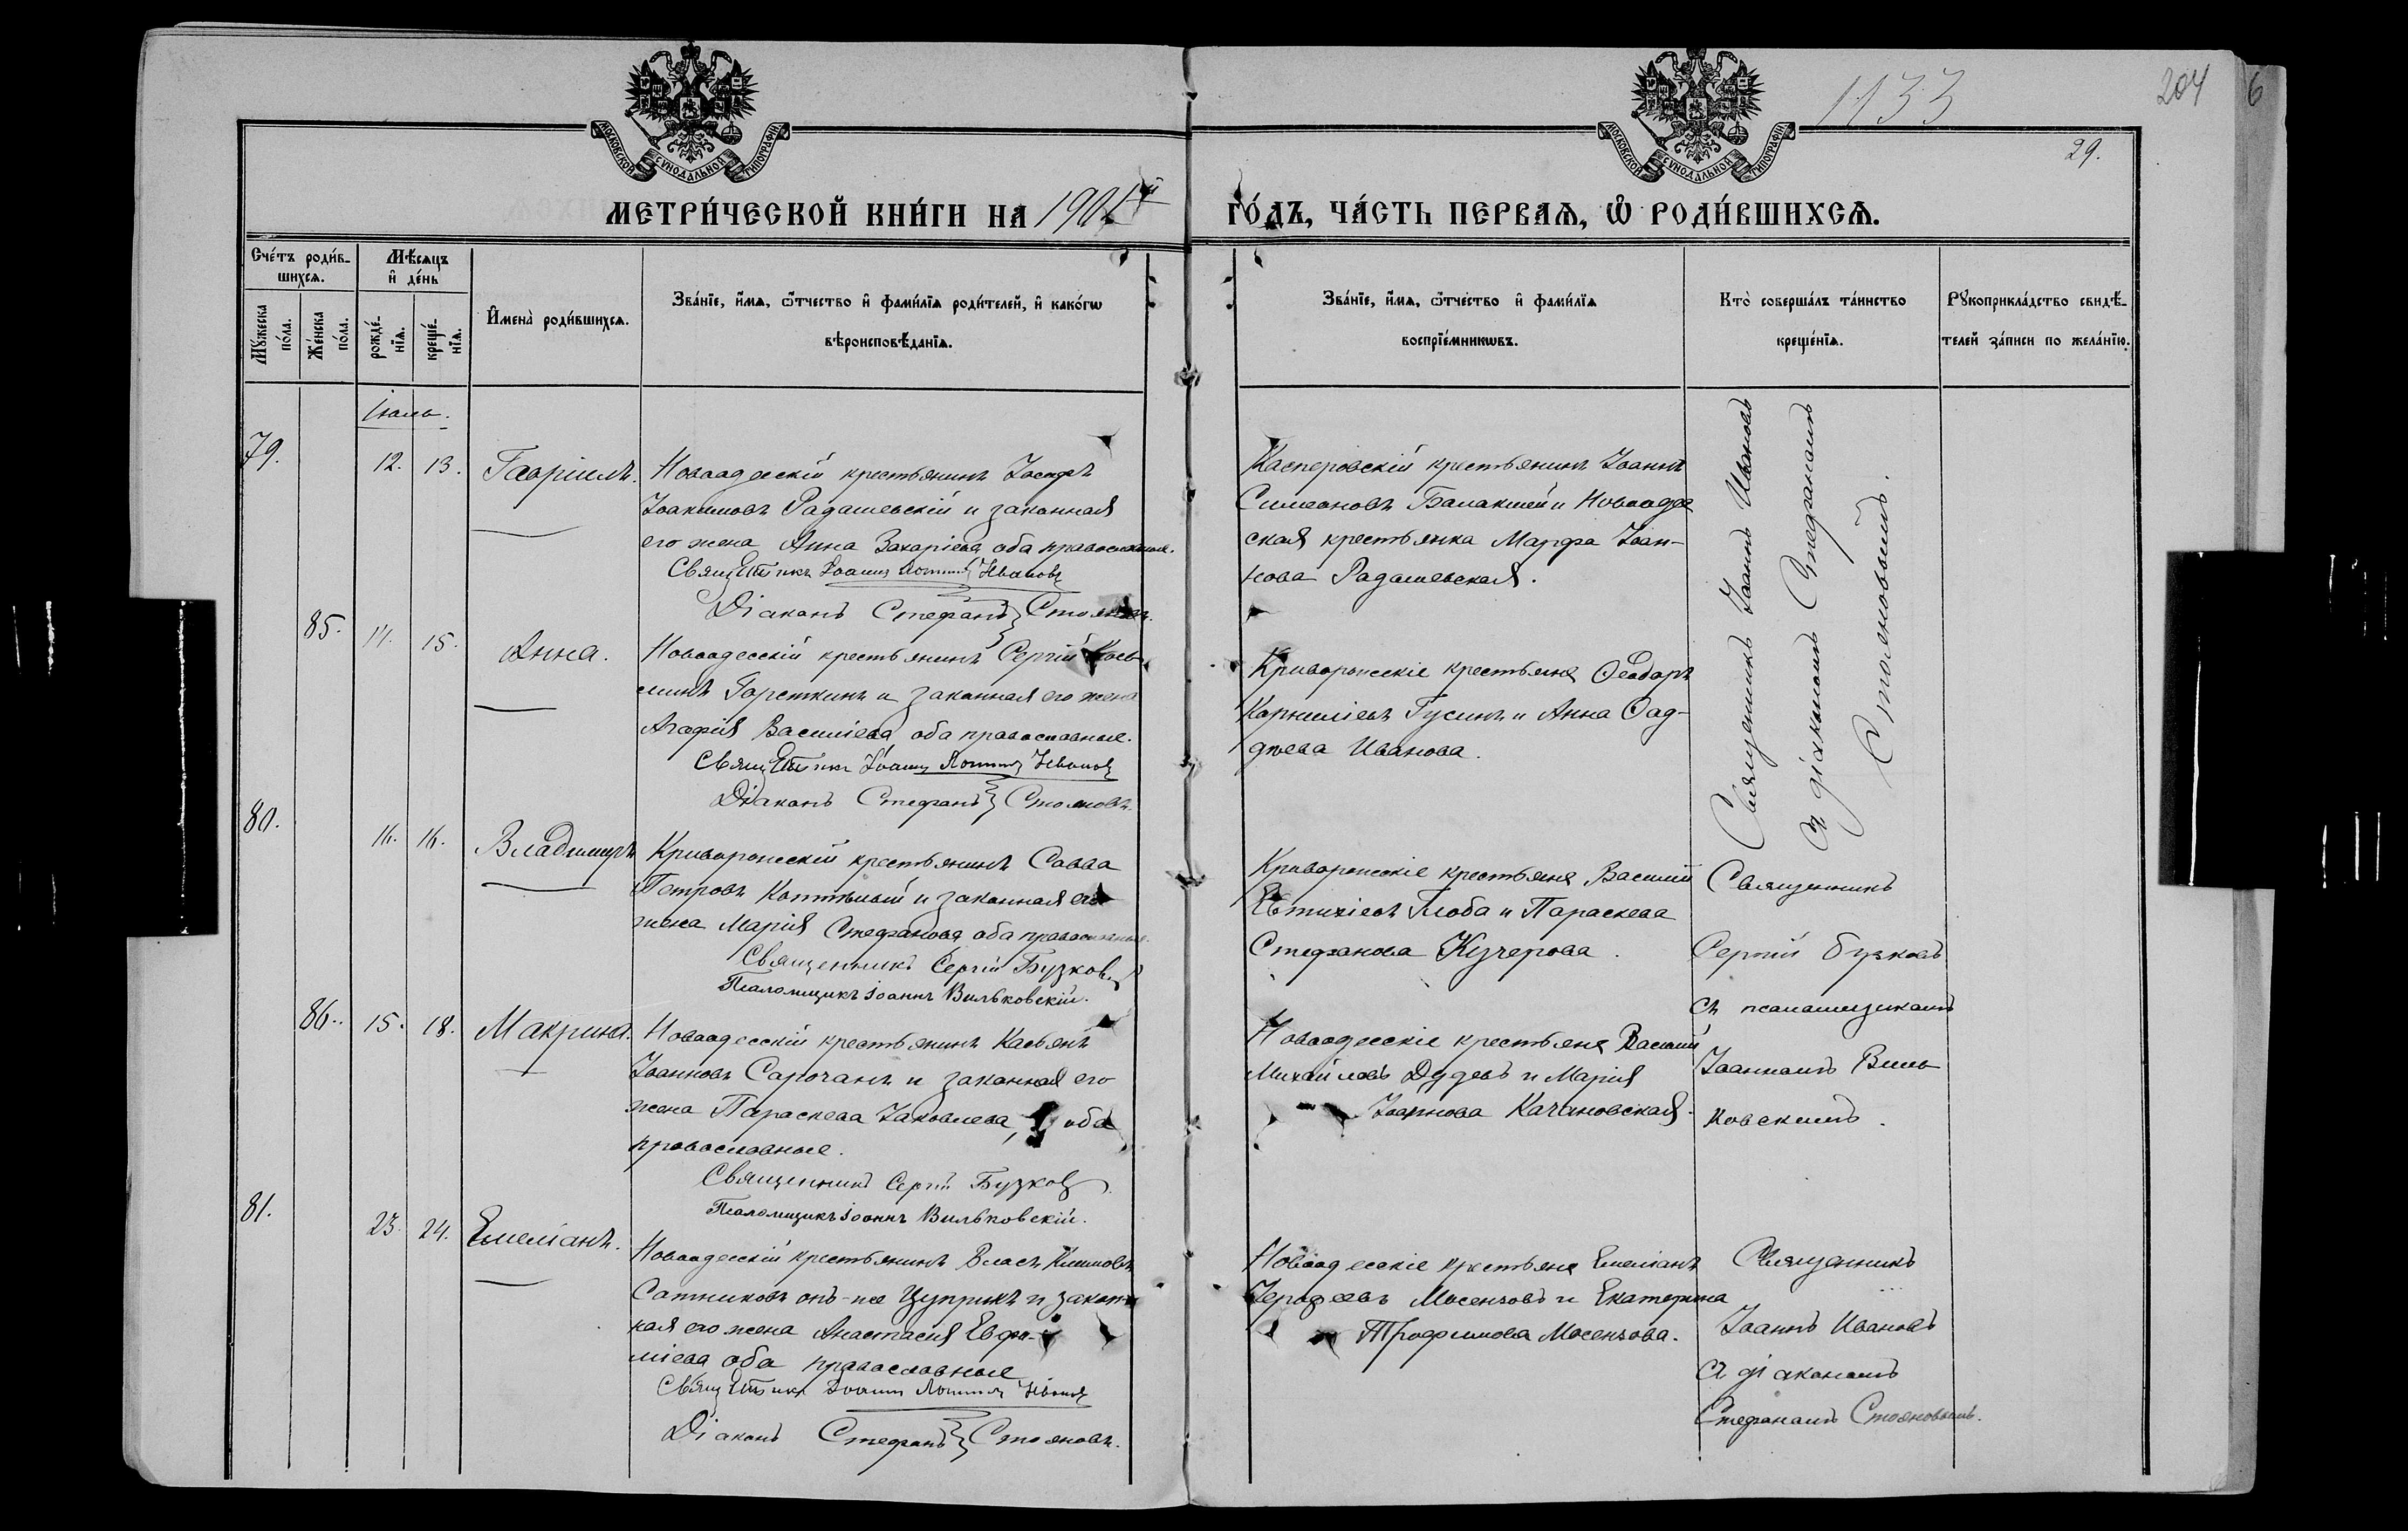 1133
204
6
29.
МОСКОВСКОЙ СУНОДАЛЬНОЙ ТИПОГРАФІИ
МОСКОВСКОЙ СУНОДАЛЬНОЙ ТИПОГРАФІИ
МЕТРИ́ЧЕСКОЙ КНИ́ГИ НА 1901й
ГО́ДЪ, ЧА́СТЬ ПЕРВАѦ, Ѽ РОДИ́ВШИХСѦ.
Сче́тъ роди́в-
шихсѧ.
Мꙋ́жеска по́ла.
Же́нска по́ла.
Мѣ́сѧцъ
и҆ де́нь
рожде́-
нїѧ.
креще́-
нїѧ.
И҆мена̀ роди́вшихсѧ.
Зва́нїе, и҆́мѧ, ѻ҆́тчество и҆ фами́лїѧ роди́телей, и҆ како́гѡ
вѣроисповѣ́данїѧ.
Зва́нїе, и҆́мѧ, ѻ҆́тчество и҆ фами́лїѧ
воспрїе́мникѡвъ.
Кто̀ соверша́лъ та́инство
креще́нїѧ.
Рꙋкоприкла́дство свидѣ́-
телей за́писи по жела́нїю.
Іюль.
79.
12. 13.
Гавріилъ.
Новоодесскій крестьянинъ Іосифъ
Іоакимовъ Радашевскій и законная
его жена Анна Захаріева, оба православные.
Священникъ Іоаннъ Иванов
Діаконъ Стефанъ Стояновъ.
Касперовскій крестьянинъ Іоаннъ
Симеоновъ Балакшей и Новоодес
ская крестьянка Марфа Іоан-
нова Радашевская.
Священникъ Іоаннъ Ивановъ
съ діакономъ Стефаномъ
Стояновымъ.
85.
14. 15.
Анна.
Новоодесскій крестьянинъ Сергій Кось
минъ Горсткинъ и законная его жена
Агафія Василіева, оба православные.
Священникъ Іоаннъ Иванов
Діаконъ Стефанъ Стояновъ.
Криворожскіе крестьяне Ѳеодоръ
Корниліевъ Гусинъ и Анна Ѳад-
дѣева Иванова.
80.
16. 16.
Владимиръ
Криворожскій крестьянинъ Савва
Петровъ и законная его
жена Марія Стефанова, оба православные.
Священникъ Сергій Бузков
Псаломщикъ Іоаннъ Вильковскій.
Криворожскіе крестьяне Василій
Евтихіевъ Глоба и Параскева
Стефанова Кучерова.
Священникъ
Сергій Бузковъ
съ псаломщикомъ
Іоанномъ Виль
ковскимъ.
86.
15. 18.
Макрина.
Новоодесскій крестьянинъ Касьянъ
Іоанновъ Сарочанъ и законная его
жена Параскева Іаковлева, оба
православные.
Священникъ Сергій Бузков
Псаломщикъ Іоаннъ Вильковскій.
Новоодесскіе крестьяне Василій
Михайловъ Дудевъ и Марія
Іоаннова Качановская.
81.
23. 24.
Емеліанъ.
Новоодесскій крестьянинъ Власъ Климовъ
Сотниковъ онъ-же Цуприкъ и закон-
ная его жена Анастасія Евфи-
міева, оба православные
Священникъ Іоаннъ Иванов
Діаконъ Стефанъ Стояновъ.
Новоодесскіе крестьяне Емеліанъ
Іерофеевъ Мосензовъ и Екатерина
Трофимова Мосензова.
Священникъ
Іоаннъ Ивановъ
съ діакономъ
Стефаномъ Стояновымъ.